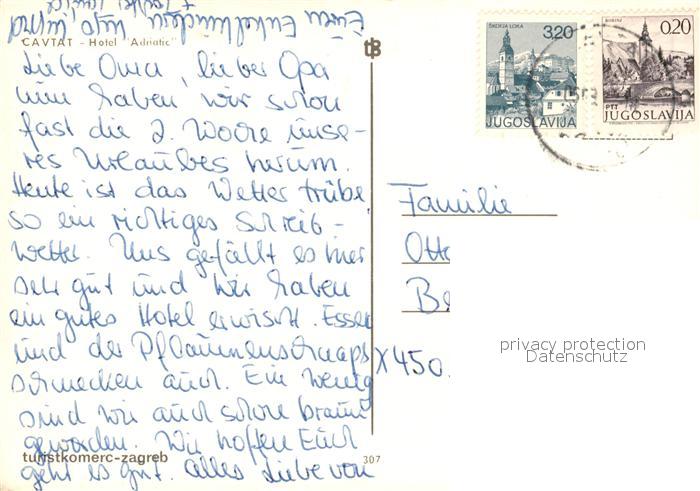 CAVTAT - Hotel "Adriatic"
tB
Liebe Oma, lieber Opa
nun haben wir schon
fast die 2. Woche unse-
res Urlaubes herum.
Heute ist das Wetter trübe
so ein richtiges Schreib-
wetter. Uns gefällt es hier
sehr gut und wir haben
ein gutes Hotel erwischt. Essen
und der Pflaumenschnaps
schmecken auch. Ein wenig
sind wir auch schon braun
geworden. Wir hoffen Euch
geht es gut. Alles Liebe von
Euren Enkelkindern
turistkomerc-zagreb
307
ŠKOFJA LOKA
3,20
JUGOSLAVIJA
BOHINJ
0,20
PTT
JUGOSLAVIJA
Familie
Otte
Be
X450.
privacy protection
Datenschutz